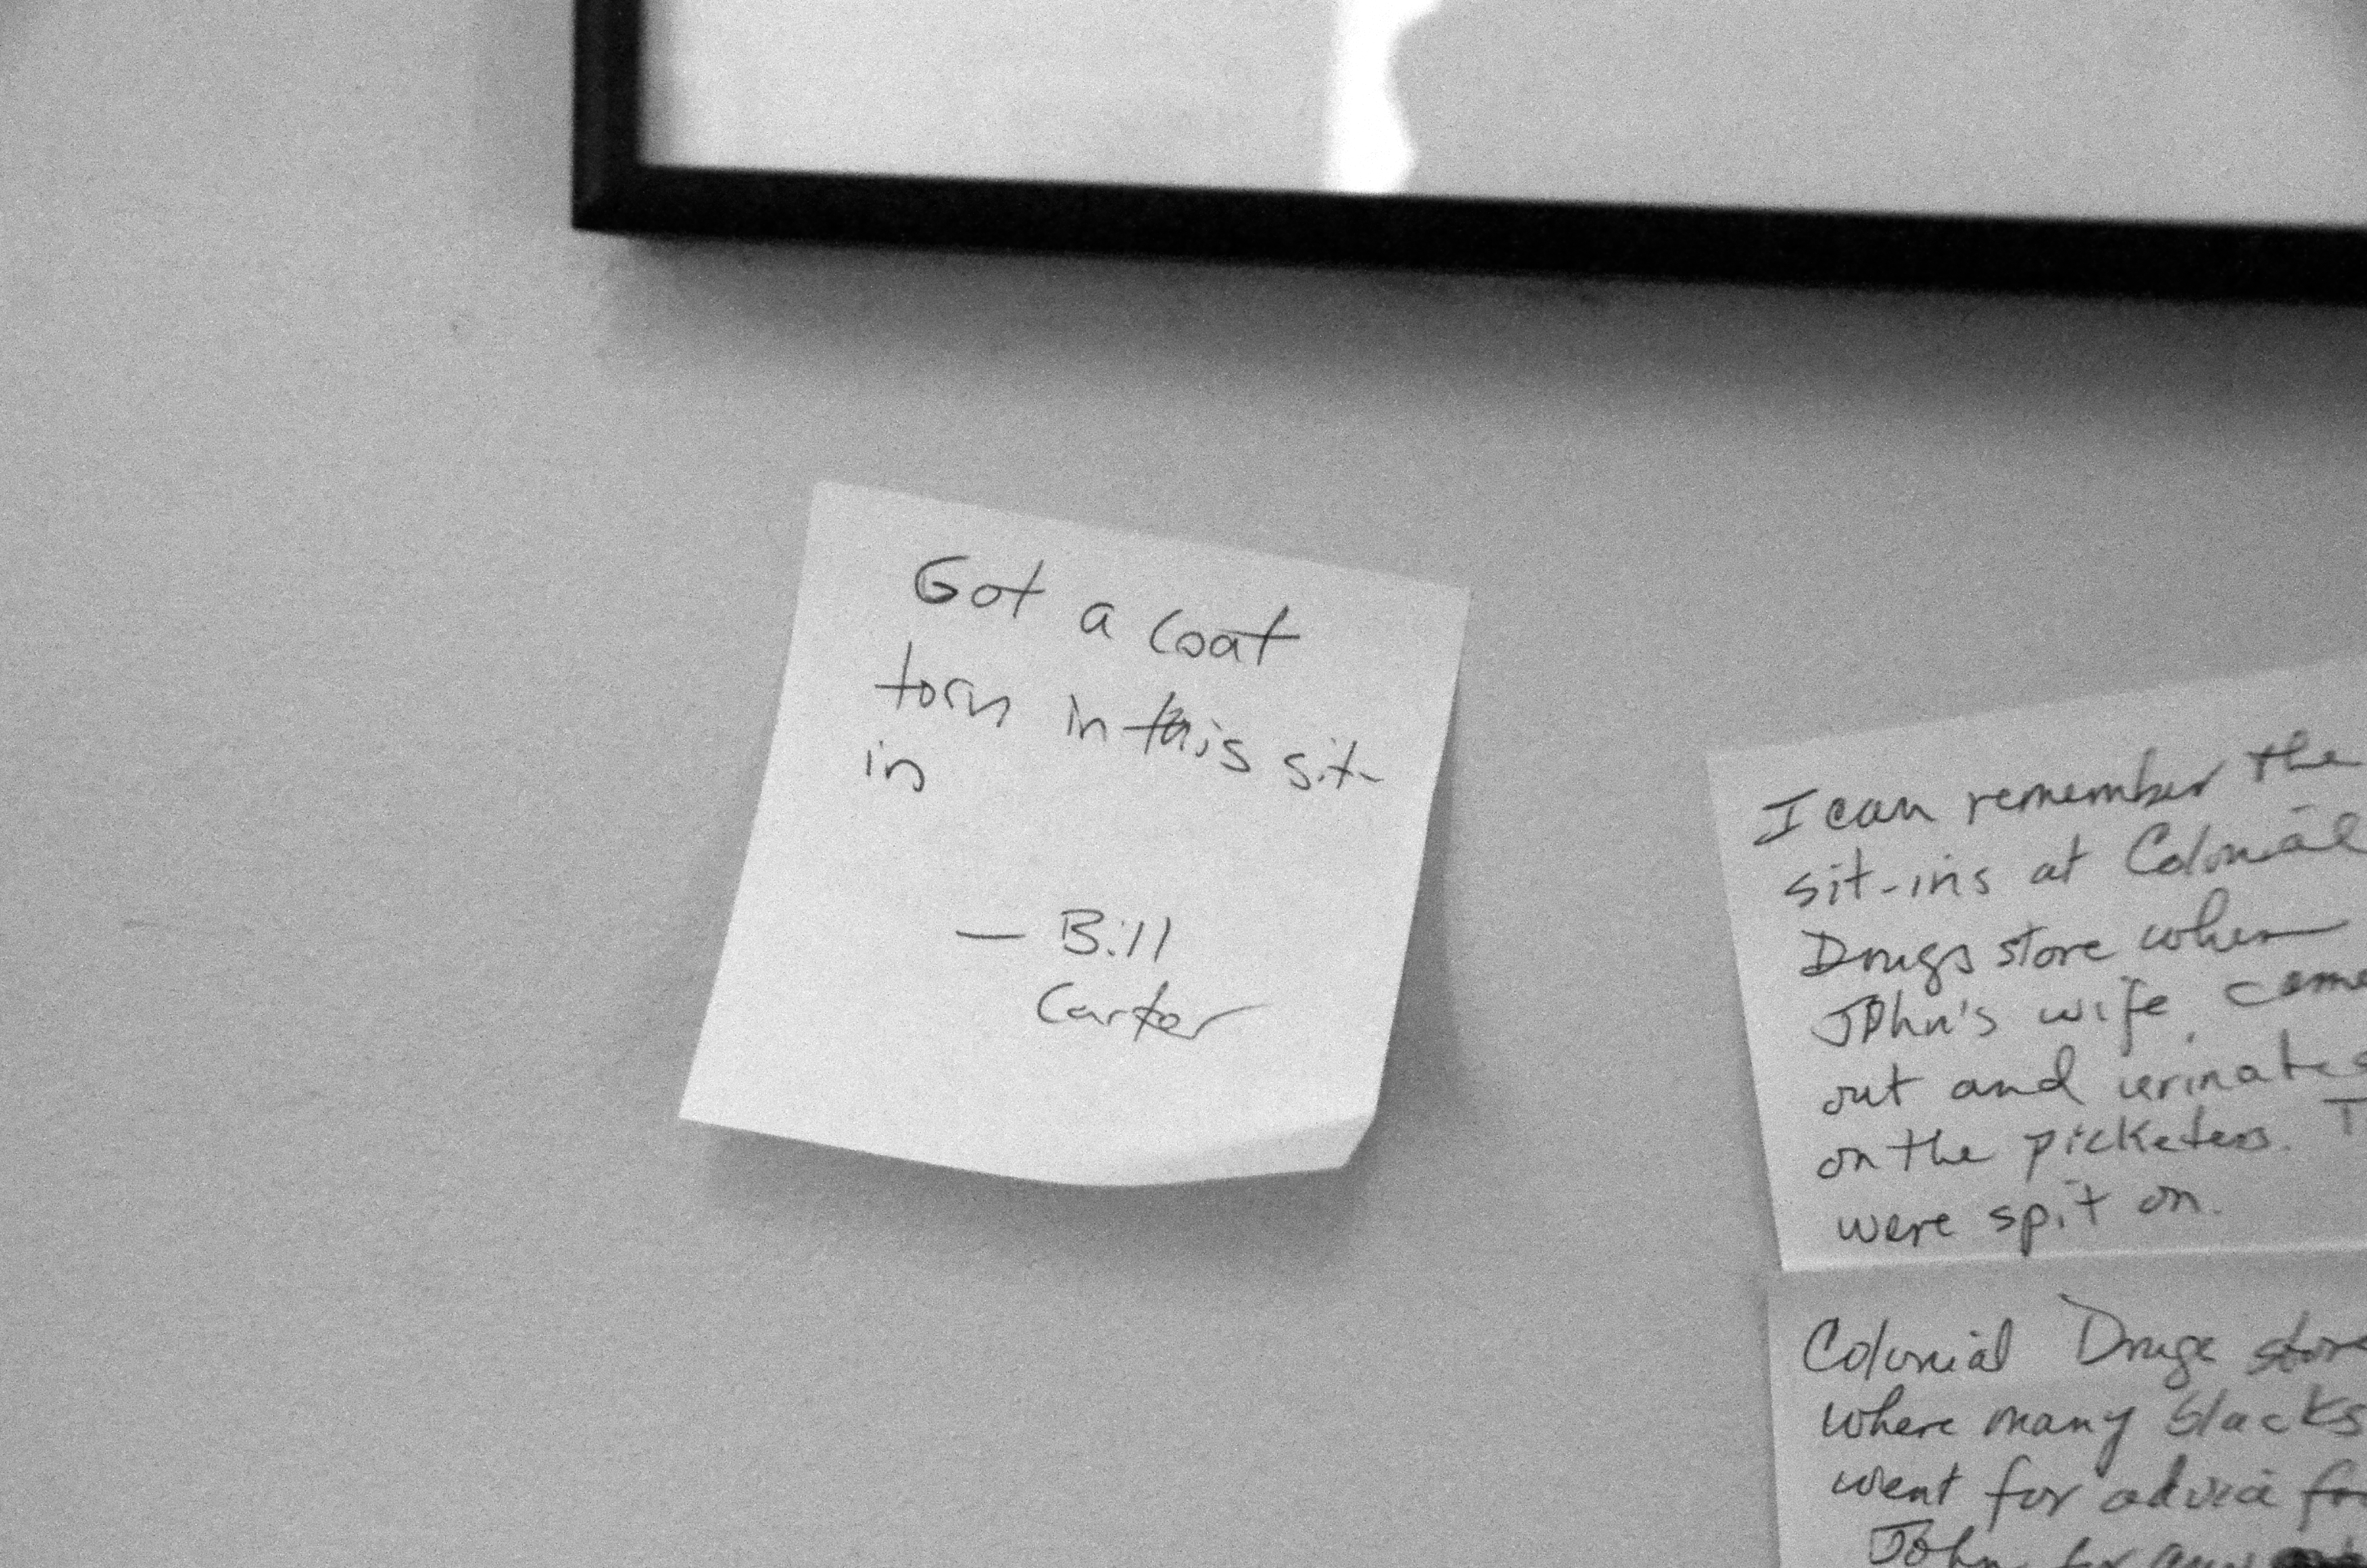 Got a coat
torn in this sit-
in
— Bill
Carter
I can remember the
sit-ins at Colonial
Drugs store when
John's wife, came
out and urinates
on the picketers. T
were spit on.
Colonial Drugs store
where many blacks
went for advice for
John for